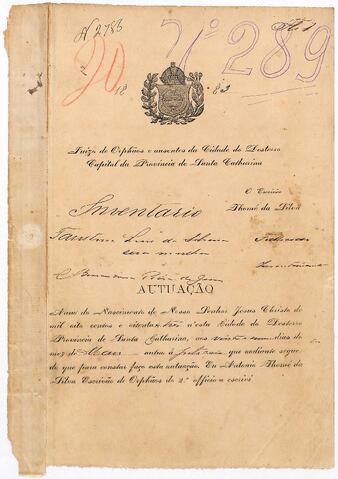 N 2786
Nº 289
Fl. 1
20
18 83
Juizo de Orphãos e ausentes da Cidade do Desterro
Capital da Provincia de Santa Catharina
O Escrivão
Thomé da Silva
Inventario
Faustino Luis da
Fallecido
sua mulher
Inventariante
AUTUAÇÃO
Anno do Nascimento de Nosso Senhor Jesus Christo de
mil oito centos e oitenta e tres n'esta Cidade do Desterro
Provincia de Santa Catharina, aos vinte e um dias do
mez de Maio autuo a que adiante segue
de que para constar faço esta autuação. Eu Antonio Thomé da
Silva Escrivão de Orphãos do 2º officio o escrivi